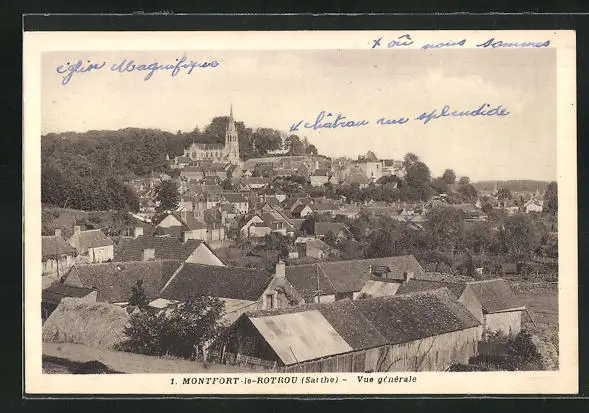 x où nous sommes
église Magnifique
x château vue splendide
1. MONTFORT-le-ROTROU (Sarthe) - Vue générale